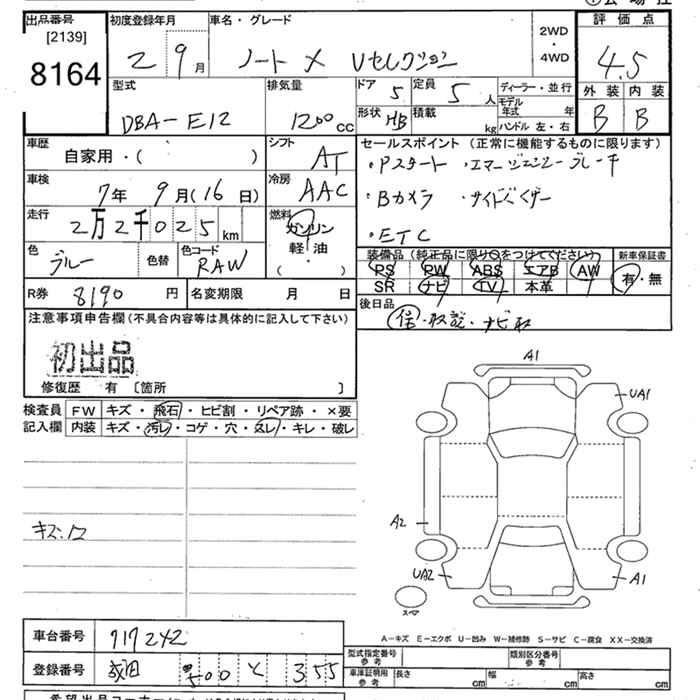 出品番号
[2139]
8164
初度登録年月
2 9月
車名・グレード
ノート X Vセレクション
2WD
・
4WD
評価点
4.5
外装 内装
B B
型式
DBA-E12
排気量
1200cc
ドア 5
定員 5人
形状 HB
積載 kg
ディーラー・並行
モデル年式 年
ハンドル 左・右
車歴
自家用・( )
シフト
AT
車検
7年 9月(16日)
冷房
AAC
走行
2万2千025km
燃料
ガソリン
軽・油
( ・ )
色
ブルー
色替
色コード
RAW
セールスポイント (正常に機能するものに限ります)
・Pスタート ・エマージェンシーブレーキ
・Bカメラ ・サイドバイザー
・ETC
装備品 (純正品に限り○をつけてください)
PS PW ABS エアB AW
SR ナビ TV 本革
新車保証書
有・無
R券 8190円
名変期限 月 日
後日品
保・取説・ナビ取
注意事項申告欄(不具合内容等は具体的に記入して下さい)
初出品
修復歴 有 〔箇所 〕
検査員記入欄
FW キズ・飛石・ヒビ割・リペア跡・×要
内装 キズ・汚レ・コゲ・穴・スレ・キレ・破レ
キズ.ワ
A1
UA1
A2
UA2
A1
スペア
A-キズ E-エクボ U-凹み W-補修跡 S-サビ C-腐食 XX-交換済
車台番号 717242
登録番号 成田 500 と 355
型式指定番号 参考
類別区分番号 参考
車庫証明用 参考
長さ cm
幅 cm
高さ cm